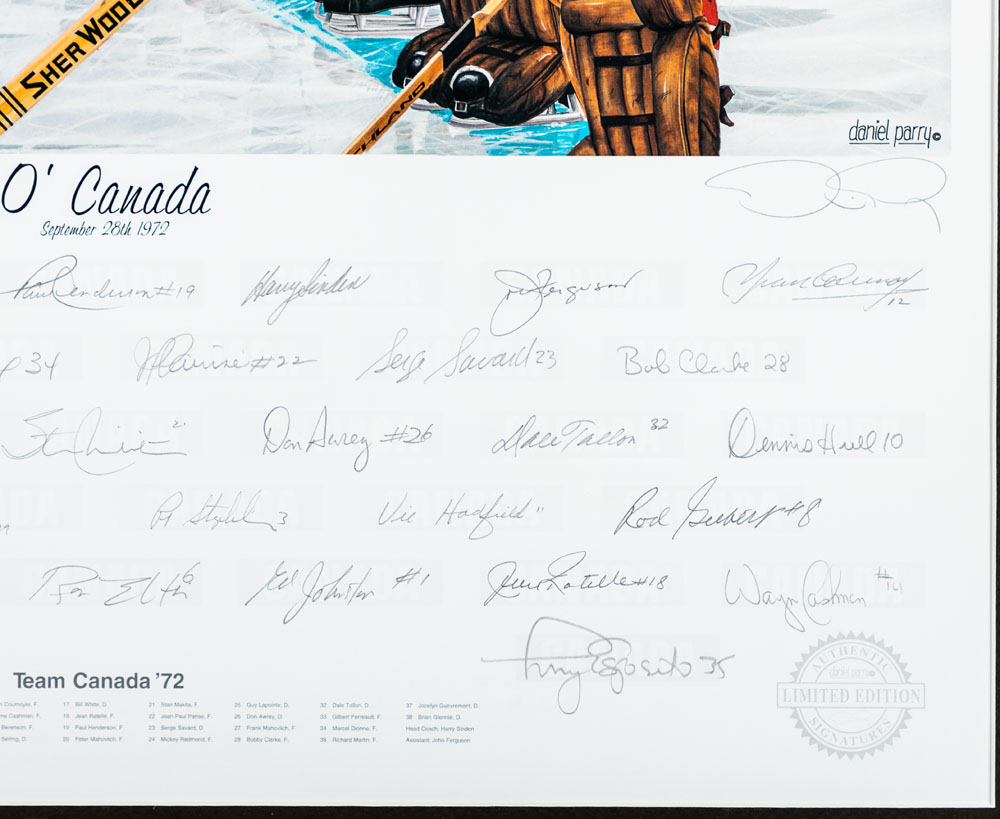 SHERWOOD
daniel parry©
O' Canada
September 28th 1972
Paul Henderson #19 Harry Sinden John Ferguson Yvan Cournoyer 12
34 JP Parise #22 Serge Savard 23 Bob Clarke 28
Stan Mikita 21 Don Awrey #26 Dale Tallon 32 Dennis Hull 10
Pat Stapleton 3 Vic Hadfield 11 Rod Gilbert #8
Ron Ellis 6 Ed Johnston #1 Jean Ratelle #18 Wayne Cashman #14
Tony Esposito 35
AUTHENTIC
daniel parry©
LIMITED EDITION
SIGNATURES
Team Canada '72
Cournoyer, F. 17 Bill White, D. 21 Stan Mikita, F. 25 Guy Lapointe, D. 32 Dale Tallon, D. 37 Jocelyn Guevremont, D.
Cashman, F. 18 Jean Ratelle, F. 22 Jean Paul Parise, F. 26 Don Awrey, D. 33 Gilbert Perreault, F. 38 Brian Glennie, D.
Berenson, F. 19 Paul Henderson, F. 23 Serge Savard, D. 27 Frank Mahovlich, F. 34 Marcel Dionne, F. Head Coach: Harry Sinden
Seiling, D. 20 Peter Mahovlich, F. 24 Mickey Redmond, F. 28 Bobby Clarke, F. 36 Richard Martin, F. Assistant: John Ferguson